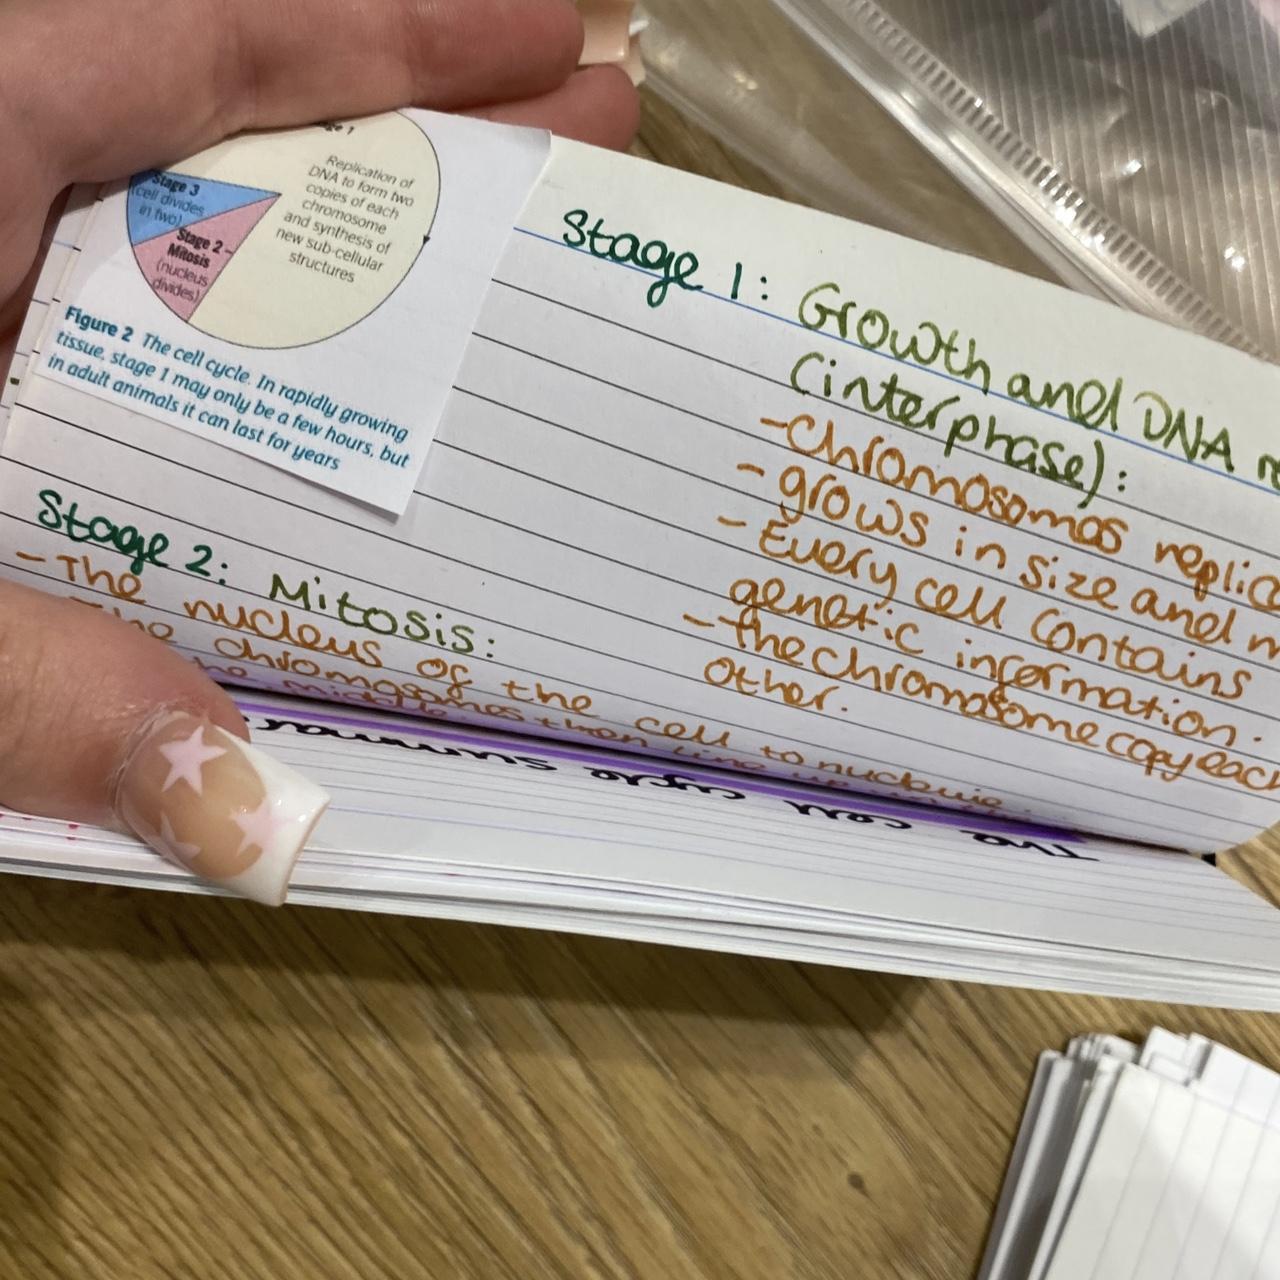 Replication of
DNA to form two
copies of each
chromosome
and synthesis of
new sub-cellular
structures
Stage 3
(cell divides
in two)
Stage 2 –
Mitosis
(nucleus
divides)
Figure 2 The cell cycle. In rapidly growing
tissue, stage 1 may only be a few hours, but
in adult animals it can last for years
Stage 1: Growth and DNA
(interphase):
-Chromosomas
- grows in size and
- Every cell contains
genetic information.
- the chromosome copy each
Other.
Stage 2: Mitosis:
- The nucleus of the cell to
The chromosomes then line up
the middle.
The cell cycle